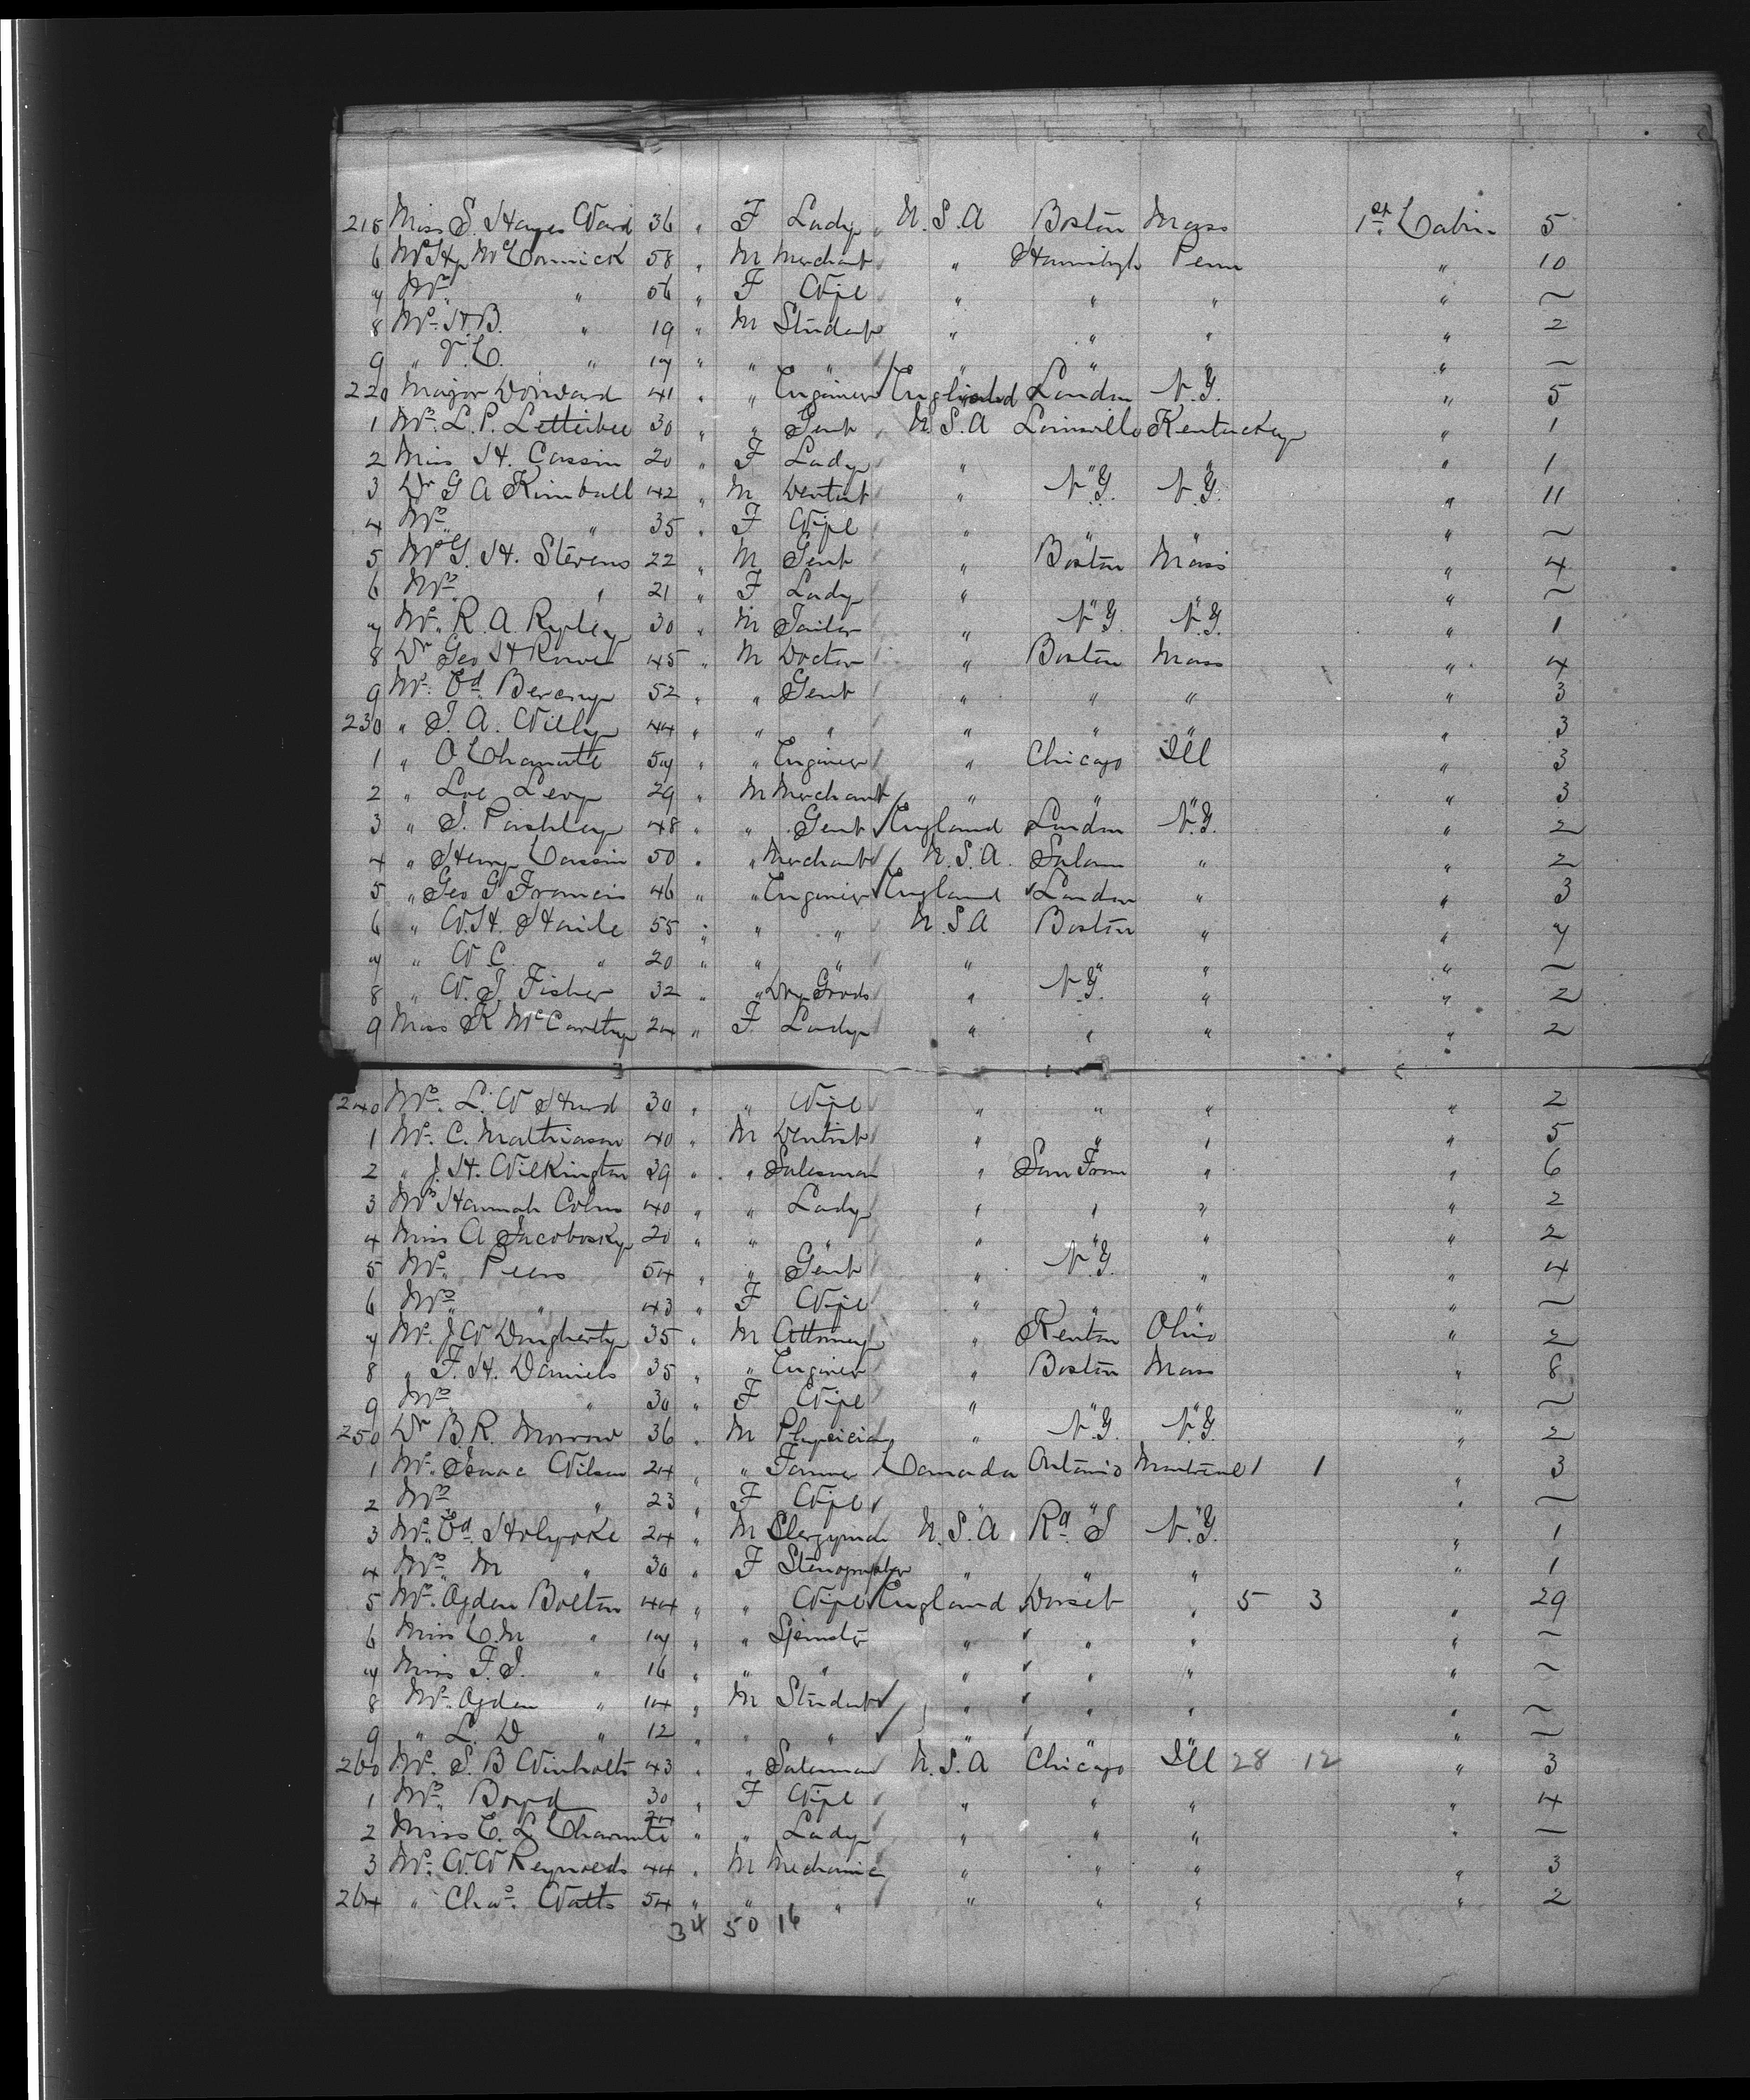 215 Miss S. Hayes Ward 36 " F Lady " U.S.A Boston Mass 1st Cabin 5
6 Mr Hy McCormick 58 " M Merchant " Penn " 10
7 Mrs " 56 " F Wife " " " " ~
8 Mr. H.B. " 19 " M Student " " " " 2
9 " V.C. " 17 " " " " " " " ~
220 Major Dorward 41 " " Engineer England London N.Y. " 5
1 Mr. L.P. 30 " " Gent " U.S.A Louisville Kentucky " 1
2 Miss H. Cassin 20 " F Lady " " " " 1
3 Dr G A Kimball 42 " M Dentist " N.Y. N.Y. " 11
4 Mrs " 35 " F Wife " " " " ~
5 Mr G. H. Stevens 22 " M Gent " Boston Mass " 4
6 Mrs. " 21 " F Lady " " " " ~
7 Mr. R. A. Ripley 30 " M Tailor " N.Y. N.Y. " 1
8 Dr Geo H 45 " M Doctor " Boston Mass " 4
9 Mr. Ed. 52 " " Gent " " " " 3
230 " J. A. Willy 44 " " " " " " " 3
1 " O Chanute 57 " " Engineer " Chicago Ill " 3
2 " Levy 29 " M Merchant " " " " 3
3 " J. Pashley 48 " " Gent England London N.Y. " 2
4 " Henry Cassin 50 " " Merchant U.S.A. Salem " " 2
5 " Geo G Francis 46 " " Engineer England London " " 3
6 " W.H. Haile 55 " " " U.S.A Boston " " 7
7 " W C. " 20 " " " " " " " ~
8 " W. J. Fisher 32 " " Dry Goods " N.Y. " " 2
9 Miss K McCarthy 24 " F. Lady " " " " 2
240 Mrs. L. W Hurd 30 " " Wife " " " " 2
1 Mr. C. Mathiason 40 " M Dentist " " " " 5
2 " J. H. Wilkington 39 " " Salesman " San Fran " " 6
3 Mrs Hannah Cohn 40 " " Lady " " " " 2
4 Miss A Jacobosky 20 " " " " " " " 2
5 Mr. Peers 54 " " Gent " N.Y. " " 4
6 Mrs " 43 " F Wife " " " " ~
7 Mr. J W Dougherty 35 " M Attorney " Kenton Ohio " 2
8 " F. H. Daniels 35 " " Engineer " Boston Mass " 8
9 Mrs " 30 " F Wife " " " " ~
250 Dr B. R. Morrow 36 " M Physician " N.Y. N.Y. " 2
1 Mr. Isaac Wilson 24 " " Farmer Canada Ontario Montreal 1 1 " 3
2 Mrs " 23 " F Wife " " " " ~
3 Mr. Ed. Holyoke 24 " M Clergyman U.S.A N.Y. " 1
4 Mrs. M " 30 " F Stenographer " " " " 1
5 Mrs. Ogden Bolton 44 " " Wife England Dorset " 5 3 " 29
6 Miss C.M " 17 " " Spinster " " " " ~
7 Miss F. J. " 16 " " " " " " " ~
8 Mr. Ogden " 14 " M Student " " " " ~
9 " L. D " 12 " " " " " " " ~
260 Mr. S. B Winholt 43 " " Salesman U.S.A Chicago Ill 28 12 " 3
1 Mrs. Boyd 30 " F Wife " " " " 4
2 Miss E. L. Chanute 24 " " Lady " " " " —
3 Mr. W. W Reynolds 44 " M Mechanic " " " " 3
264 " Chas. Watts 54 " " " " " " " 2
34 50 16